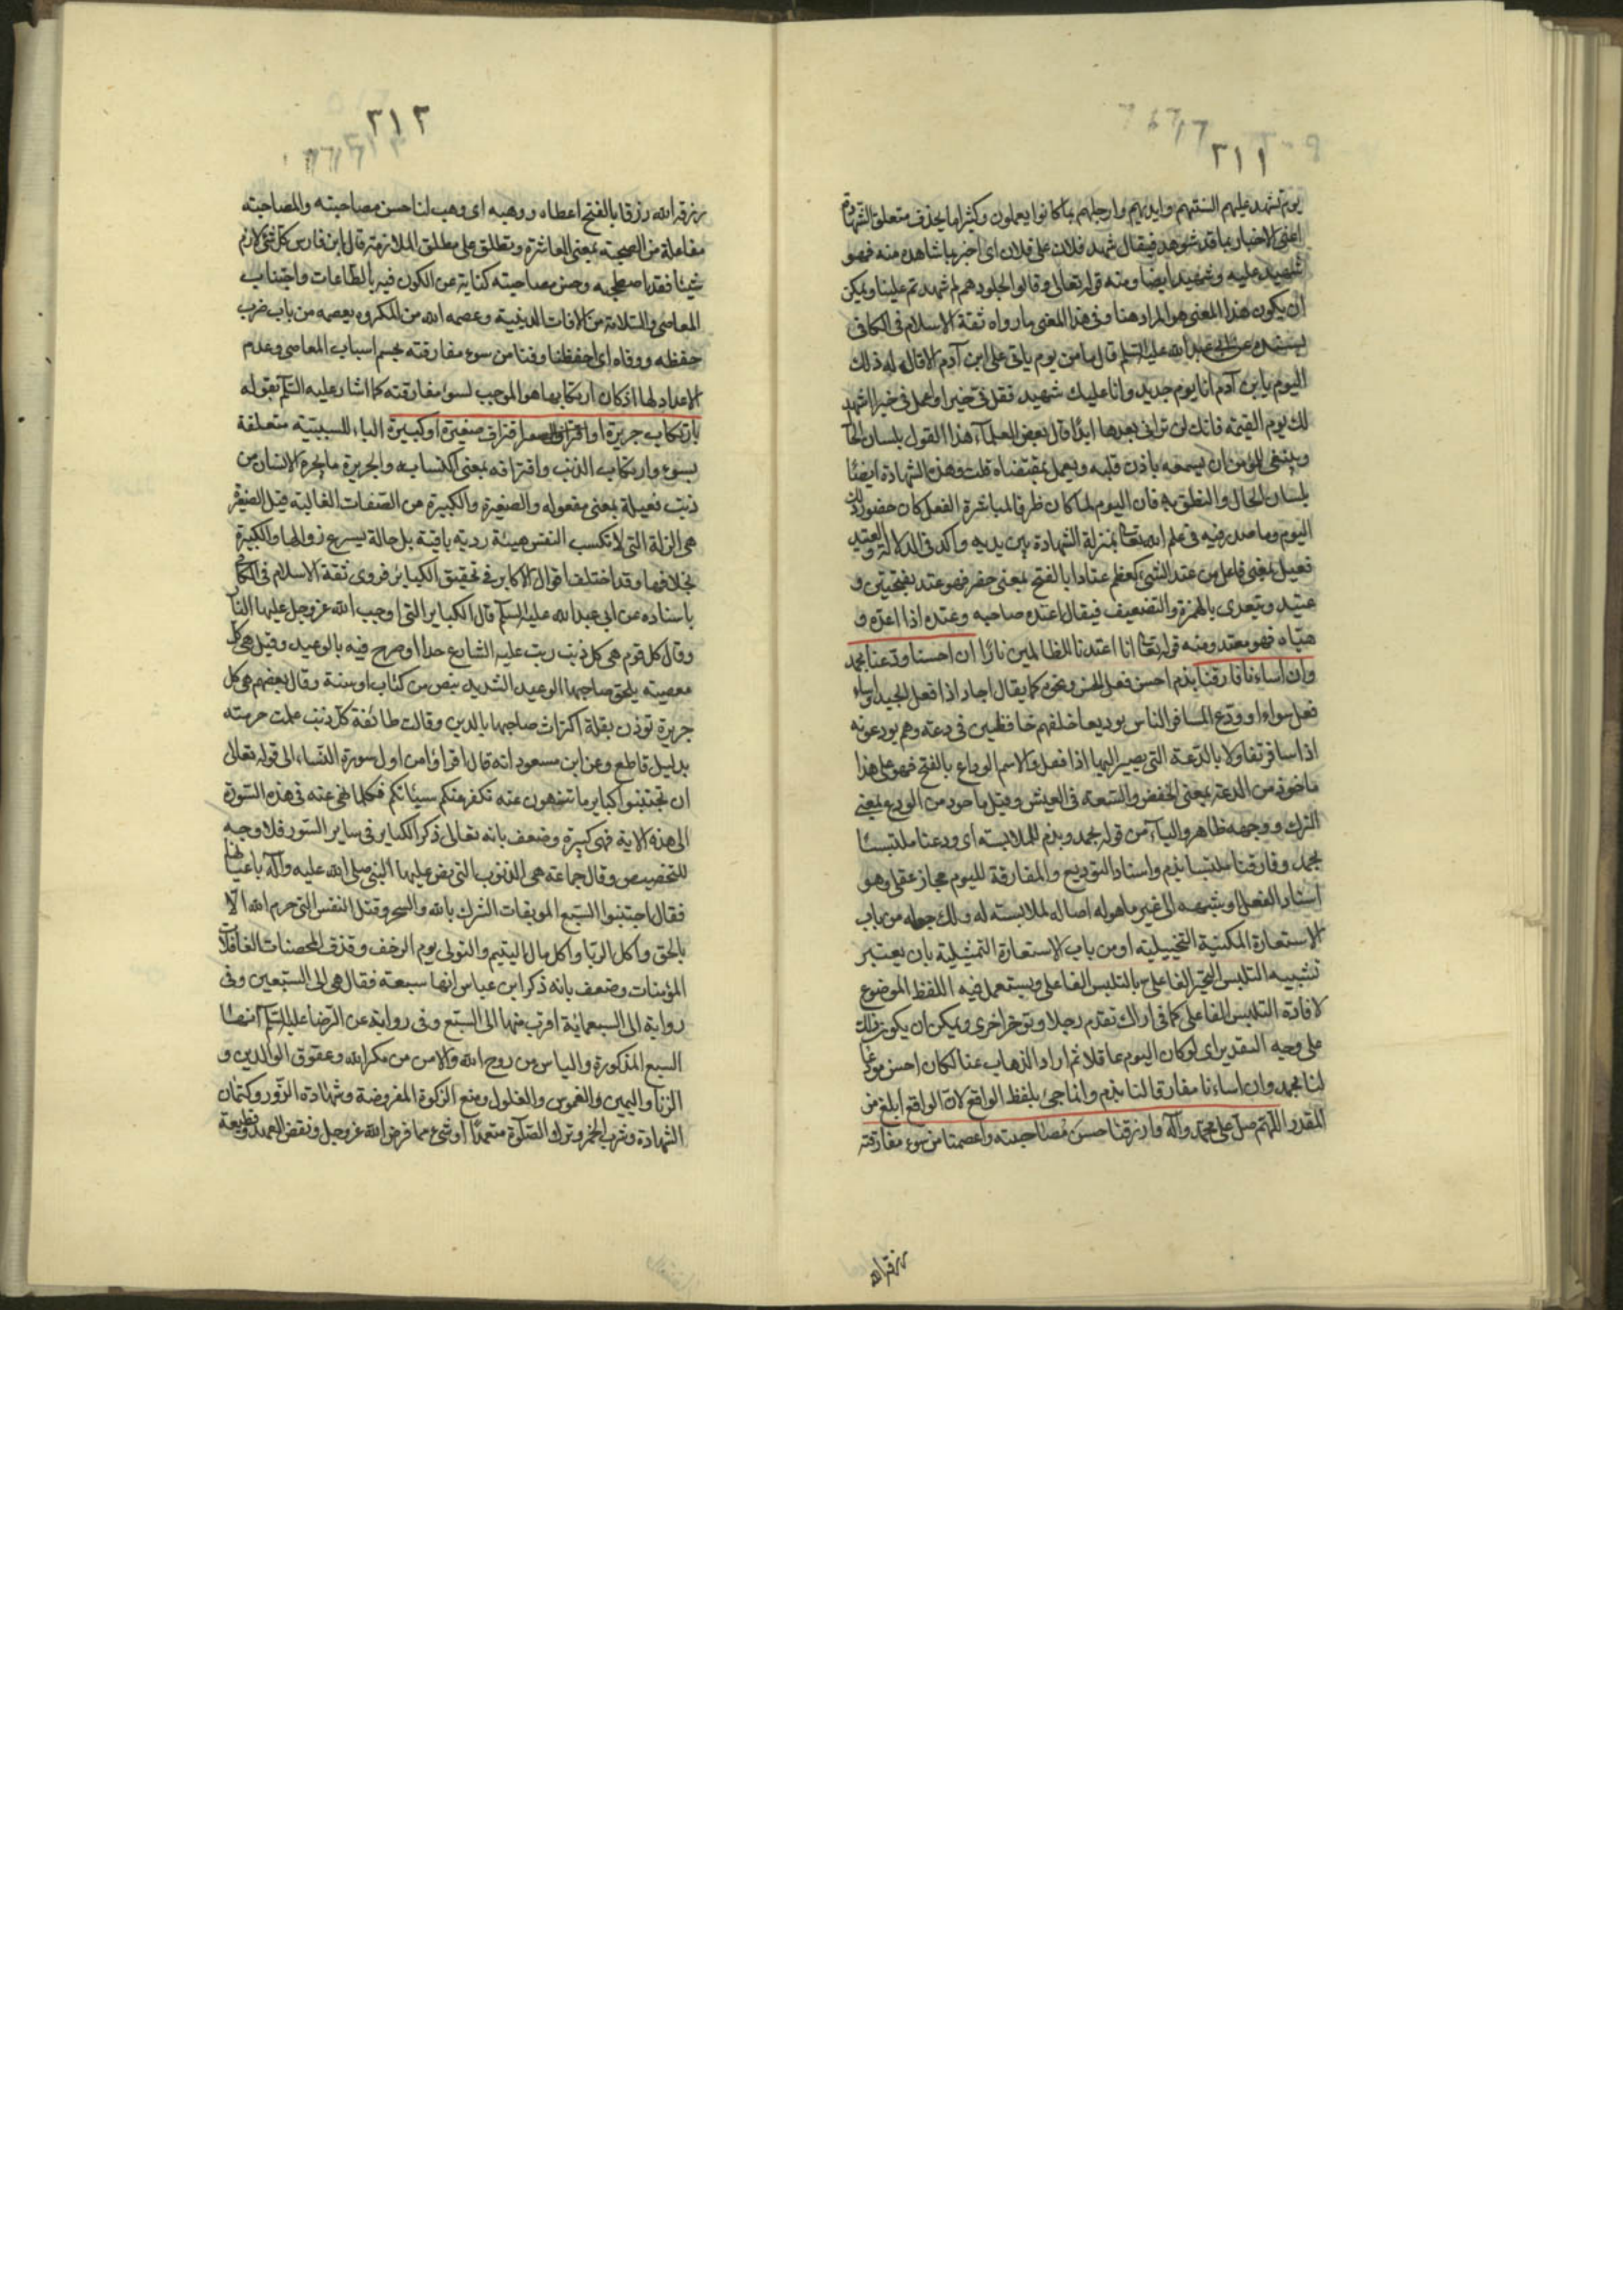 ٢١١
يوم تشهد عليهم السنتهم وايديهم وارجلهم بما كانوا يعملون وكثيرا ما يحذف متعلق الشهادة
اعنى الاخبار بما قد شوهد فيقال شهد فلان على فلان اى اخبر بما شاهده منه فهو
شهيد عليه وشهيد ايضا ومنه قوله تعالى وقالوا لجلودهم لم شهدتم علينا ويمكن
ان يكون هذا المعنى هو المراد هنا وفى هذا المعنى ما رواه ثقة الاسلام فى الكافى
بسنده عن ابى عبد الله عليه السلم قال ما من يوم ياتى على ابن آدم الا قال له ذلك
اليوم يا ابن آدم انا يوم جديد وانا عليك شهيد فقل فى خيرا واعمل فى خيرا اشهد
لك يوم القيمة فانك لن ترانى بعدها ابدا قال بعض العلمآء هذا القول بلسان الحا
وينبغى للمؤمن ان يسمعه باذن قلبه ويعمل بمقتضاه قلت وهذه الشهادة ايضا
بلسان الحال والنطق به فان اليوم لما كان ظرفا لمباشرة الفعل كان حضور ذلك
اليوم وما صدر فيه فى علم الله تعا بمنزلة الشهادة بين يديه واكد فى الدلالة والعتيد
فعيل بمعنى فاعل من عتد الشئ كعظم عتادا بالفتح بمعنى حضر فهو عتد بفتحتين و
عتيد ويتعدى بالهمزة والتضعيف فيقال اعتده صاحبه وعتده اذا اعده و
هيّاه فهو معتد ومنه قوله تعا انا اعتدنا للظالمين نارا ان احسنا ودعنا بحمد
وان اساءنا فارقنا بذم احسن فعل الحسن ونحوه كما يقال اجاد اذا فعل الجيد واساء
فعل سواءا وودع المسافر الناس توديعا خلفهم خافظين فى دعة وهم يودعونه
اذا سافر تفاولا بالدعة التى يصير اليها اذا قفل والاسم الوداع بالفتح فهو على هذا
ماخوذ من الدعة بمعنى الخفض والسعة فى العيش وقيل ماخوذ من الودع بمعنى
الترك ووجهه ظاهر والباء من قوله بحمد وبذم للملابسة اى ودعنا ملتبسا
بحمد وفارقنا ملتبسا بذم واسناد التوديع والمفارقة لليوم مجاز عقلى وهو
اسناد الفعل او شبهه الى غير ما هو له اصالة لملابسة له ولك جعله من باب
الاستعارة المكنية التخييلية او من باب الاستعارة التمثيلية بان يعتبر
تشبيه التلبس الغير الفاعلى بالتلبس الفاعلى ويستعمل فيه اللفظ الموضوع
لافادة التلبس الفاعلى كما فى اراك تقدم رجلا وتوخر اخرى ويمكن ان يكون ذلك
على وجه التقدير اى لو كان اليوم عاقلا ثم اراد الذهاب عنا لكان احسن مودعا
لنا بحمد وان اساءنا مفارقا لنا بذم وانما جئ بلفظ الواقع لان الواقع ابلغ من
المقدر اللهم صل على محمد وآله وارزقنا حسن مصاحبته واعصمنا من سوء مفارقته
رزقه الله
٢١٢
رزقه الله رزقا بالفتح اعطاه ووهبه اى وهب لنا حسن مصاحبته والمصاحبة
مفاعلة من الصحبة بمعنى المعاشرة ويطلق على مطلق الملازمة قال ابن فارس كل شئ لازم
شيئا فقد استصحبه وحسن مصاحبته كناية عن الكون فيه بالطاعات واجتناب
المعاصى والسلامة من الافات الدينية وعصمه الله من المكروه يعصمه من باب ضرب
حفظه ووقاه اى احفظنا وقنا من سوء مفارقته بحسم اسباب المعاصى وعدم
الاعداد لها اذ كان ارتكابها هو الموجب لسوء مفارقته كما اشار عليه السلم بقوله
بارتكاب جريرة او اقتراف صغيرة او كبيرة الباء للسببية متعلقة
بسوء وارتكاب الذنب واقترافه بمعنى اكتسابه والجريرة ما يجره الانسان من
ذنب فعيلة بمعنى مفعوله والصغيرة والكبيرة من الصفات الغالبة قيل الصغيرة
هى الزلة التى لا تكسب النفس هيئة ردية باقية بل حالة يسرع زوالها والكبيرة
بخلافها وقد اختلف اقوال الاكابر فى تحقيق الكبائر فروى ثقة الاسلام فى الكافى
باسناده عن ابى عبد الله عليه السلم قال الكباير التى اوجب الله عز وجل عليها النار
وقال كل قوم هى كل ذنب رتب عليه الشارع حدا او صرح فيه بالوعيد وقيل هى كل
معصية يلحق صاحبها الوعيد الشديد بنص من كتاب او سنة وقال بعضهم هى كل
جريرة توذن بقلة اكتراث صاحبها بالدين وقالت طائفة كل ذنب علمت حرمته
بدليل قاطع وعن ابن مسعود انه قال اقراوا من اول سورة النساء الى قوله تعالى
ان تجتنبوا كباير ما تنهون عنه نكفر عنكم سيئاتكم فكلما نهى عنه فى هذه السورة
الى هذه الاية فهى كبيرة وضعف بانه تعالى ذكر الكباير فى ساير السور فلا وجه
للتخصيص وقال جماعة هى الذنوب التى نص عليها النبى صلى الله عليه وآله باعيانها
فقال اجتنبوا السبع الموبقات الشرك بالله والسحر وقتل النفس التى حرم الله الا
بالحق واكل الربا واكل مال اليتيم والتولى يوم الزحف وقذف المحصنات الغافلات
المؤمنات وضعف بانه ذكر ابن عباس انها سبعة فقال هى الى السبعين وفى
رواية الى السبعمائة اقرب منها الى السبع وفى رواية عن الرضا عليه السلم انها
السبع المذكورة والياس من روح الله والامن من مكر الله وعقوق الوالدين و
الزنا واليمين والغموس والغلول ومنع الزكوة المفروضة وشهادة الزور وكتمان
الشهادة وشرب الخمر وترك الصلوة متعمدا او شئ مما فرض الله عز وجل ونقض العهد وقطيعة